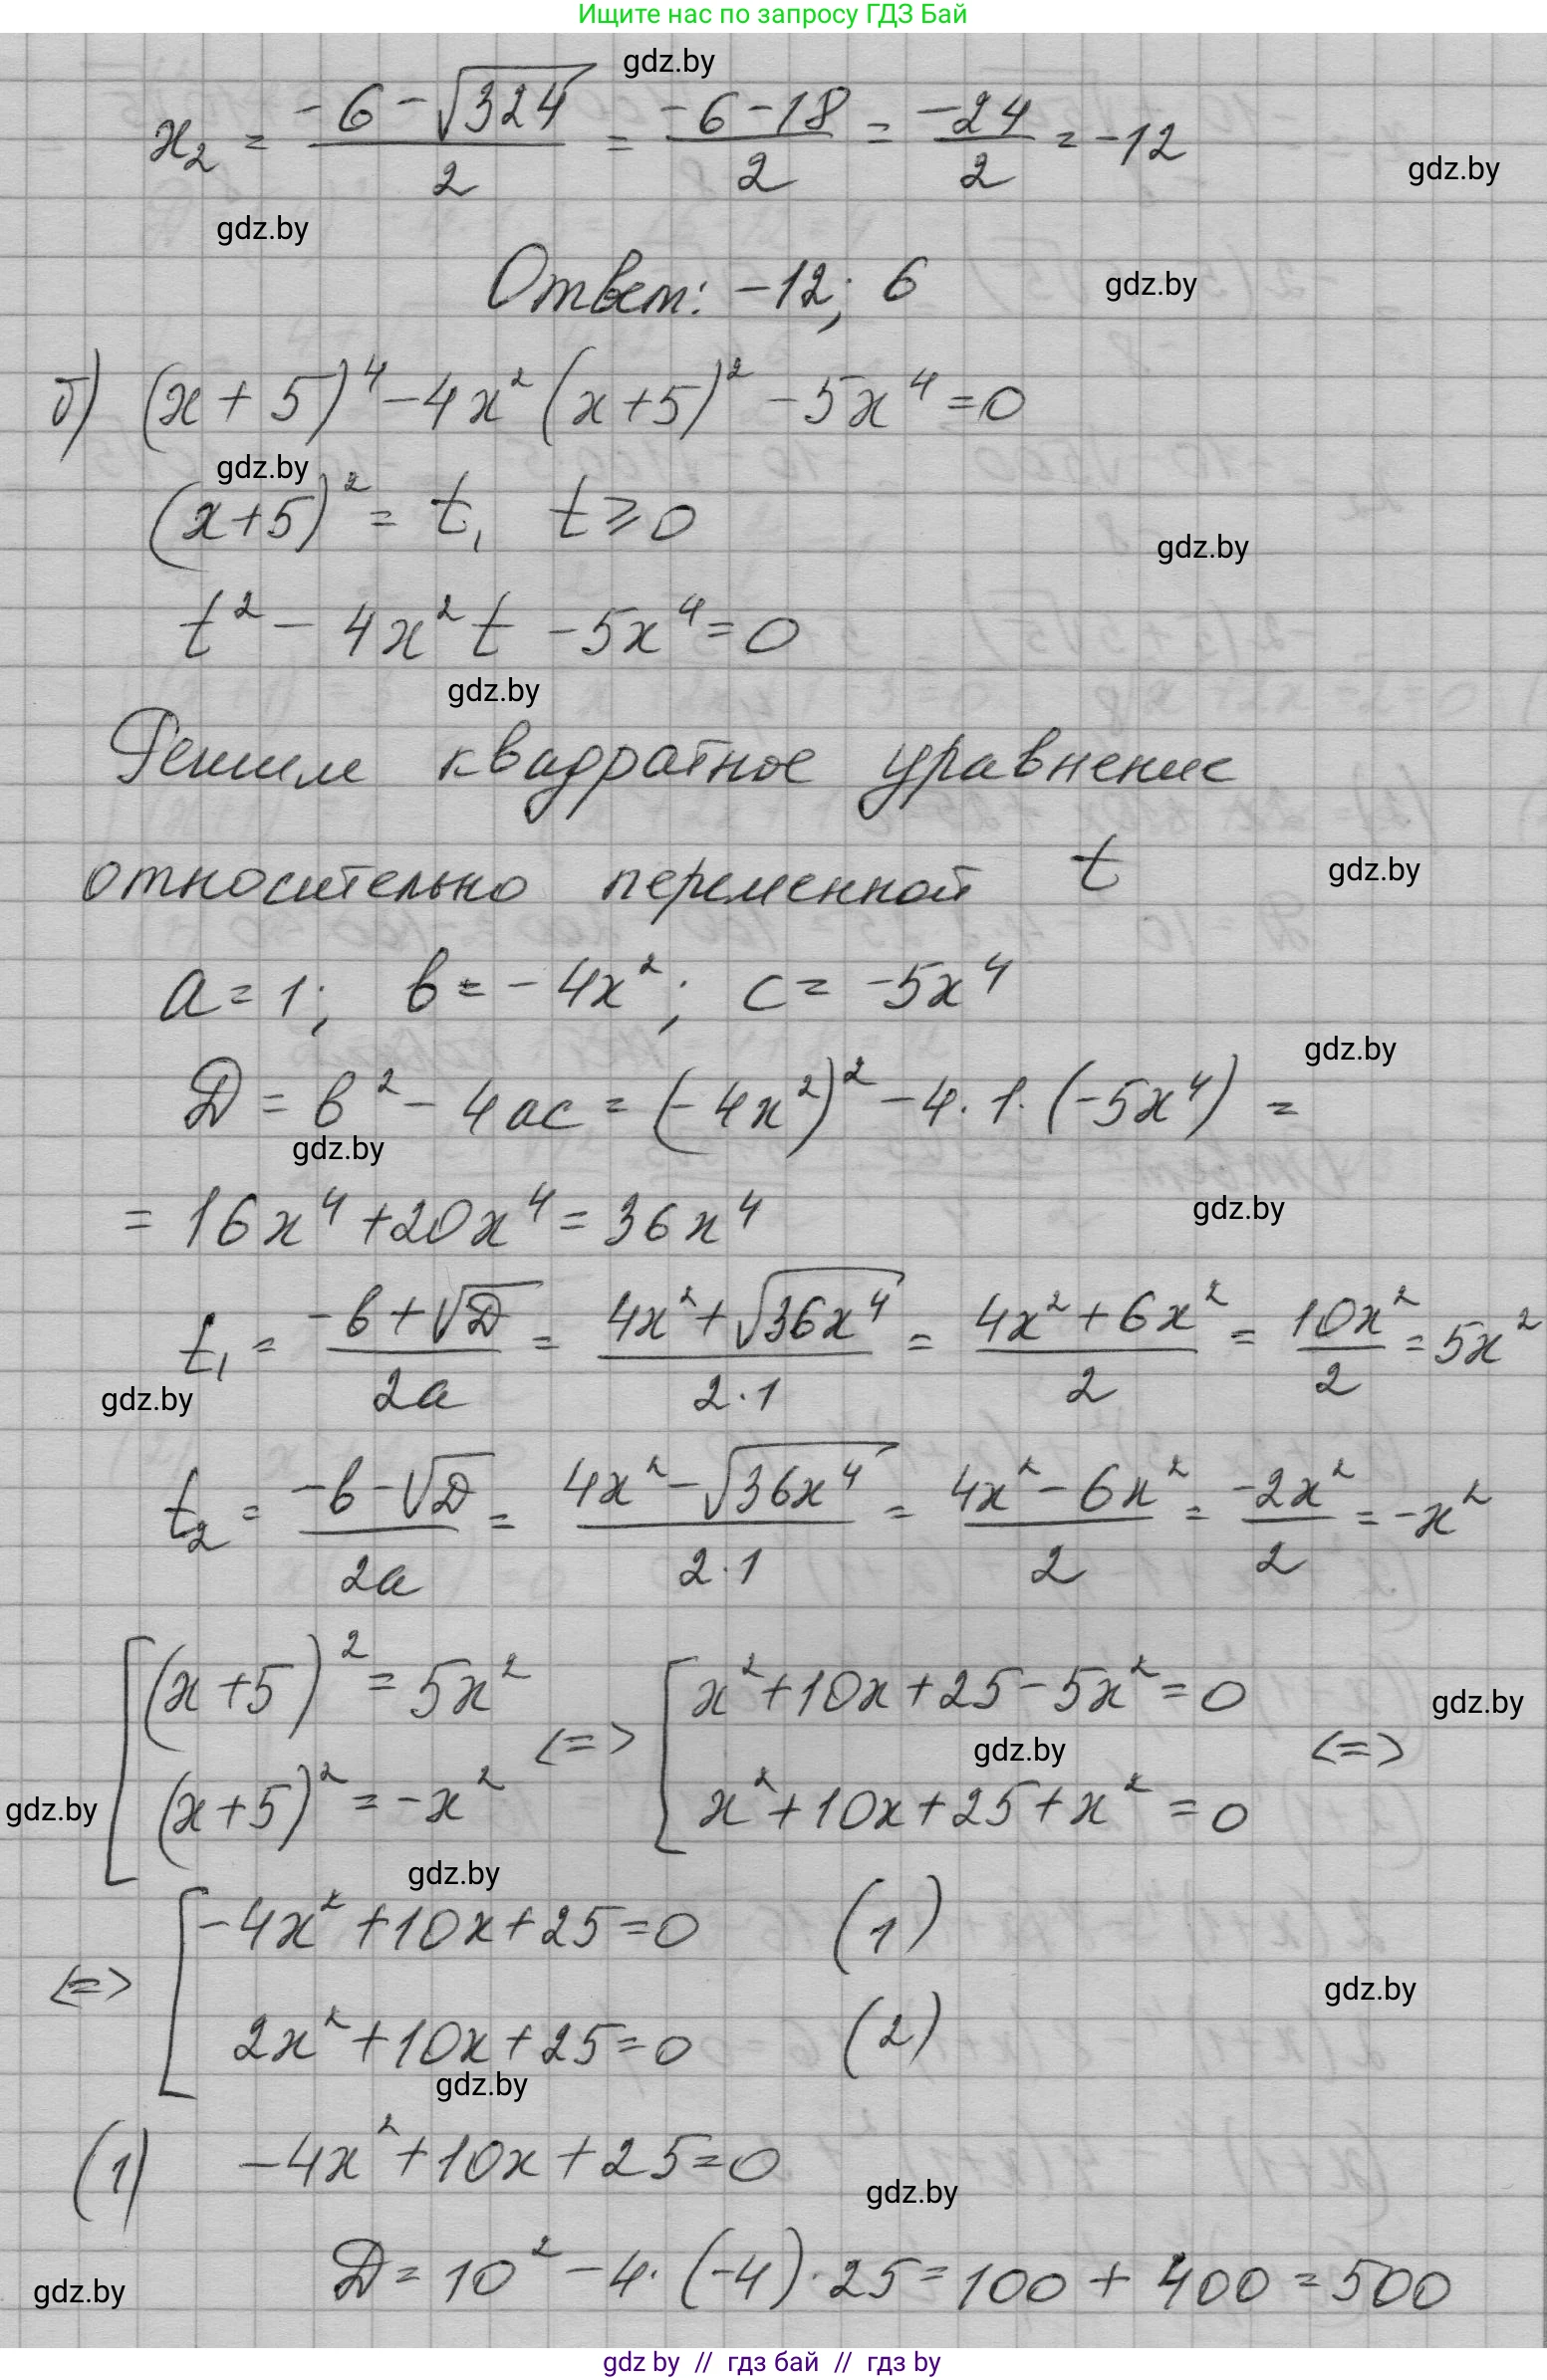 Ищите нас по запросу ГДЗ Бай
gdz.by
x₂ = (-6 - √324)/2 = (-6 - 18)/2 = -24/2 = -12
gdz.by
gdz.by
Ответ: -12; 6
gdz.by
б) (x + 5)⁴ - 4x² (x + 5)² - 5x⁴ = 0
gdz.by
(x + 5)² = t, t ≥ 0
gdz.by
t² - 4x² t - 5x⁴ = 0
gdz.by
Решим квадратное уравнение
относительно переменной t
gdz.by
a = 1; b = -4x²; c = -5x⁴
gdz.by
D = b² - 4ac = (-4x²)² - 4·1·(-5x⁴) =
gdz.by
= 16x⁴ + 20x⁴ = 36x⁴
gdz.by
t₁ = (-b + √D)/2a = (4x² + √36x⁴)/2·1 = (4x² + 6x²)/2 = 10x²/2 = 5x²
gdz.by
t₂ = (-b - √D)/2a = (4x² - √36x⁴)/2·1 = (4x² - 6x²)/2 = -2x²/2 = -x²
[(x + 5)² = 5x² <=> [x² + 10x + 25 - 5x² = 0 <=>
gdz.by
gdz.by
(x + 5)² = -x² x² + 10x + 25 + x² = 0
gdz.by
gdz.by
<=> [-4x² + 10x + 25 = 0 (1)
gdz.by
2x² + 10x + 25 = 0 (2)
gdz.by
(1) -4x² + 10x + 25 = 0
gdz.by
D = 10² - 4·(-4)·25 = 100 + 400 = 500
gdz.by
gdz by // гдз бай // гдз by